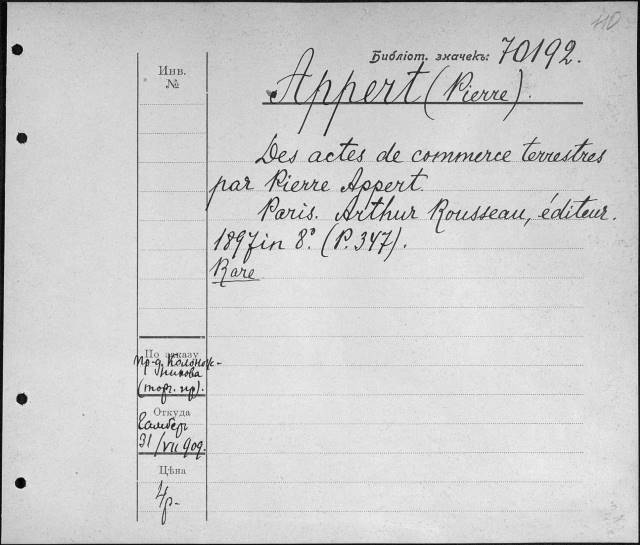 40
Библіот. значекъ: 70192.
Инв.
№
Appert (Pierre).
Des actes de commerce terrestres
par Pierre Appert.
Paris. Arthur Rousseau, éditeur.
1897 in 8º. (P. 347).
Rare
По заказу
пр-д. Колотож-
никова
(торг. пр).
Откуда
Гамберг
31/VII 909.
Цѣна
4р-